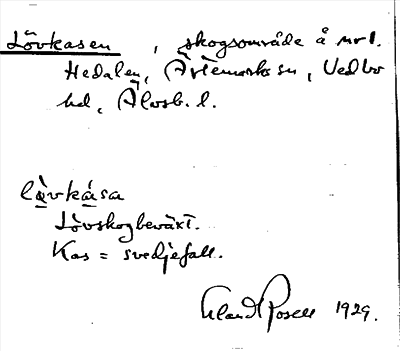 Lövkasen, skogsområde å mrl.
Hedalen, Ärtemarks sn, Vedbo
hd, Älvsb. l.
lövkåsa
Lövskogbeväxt.
Kas = svedjefall.
Erland Rosell 1929.